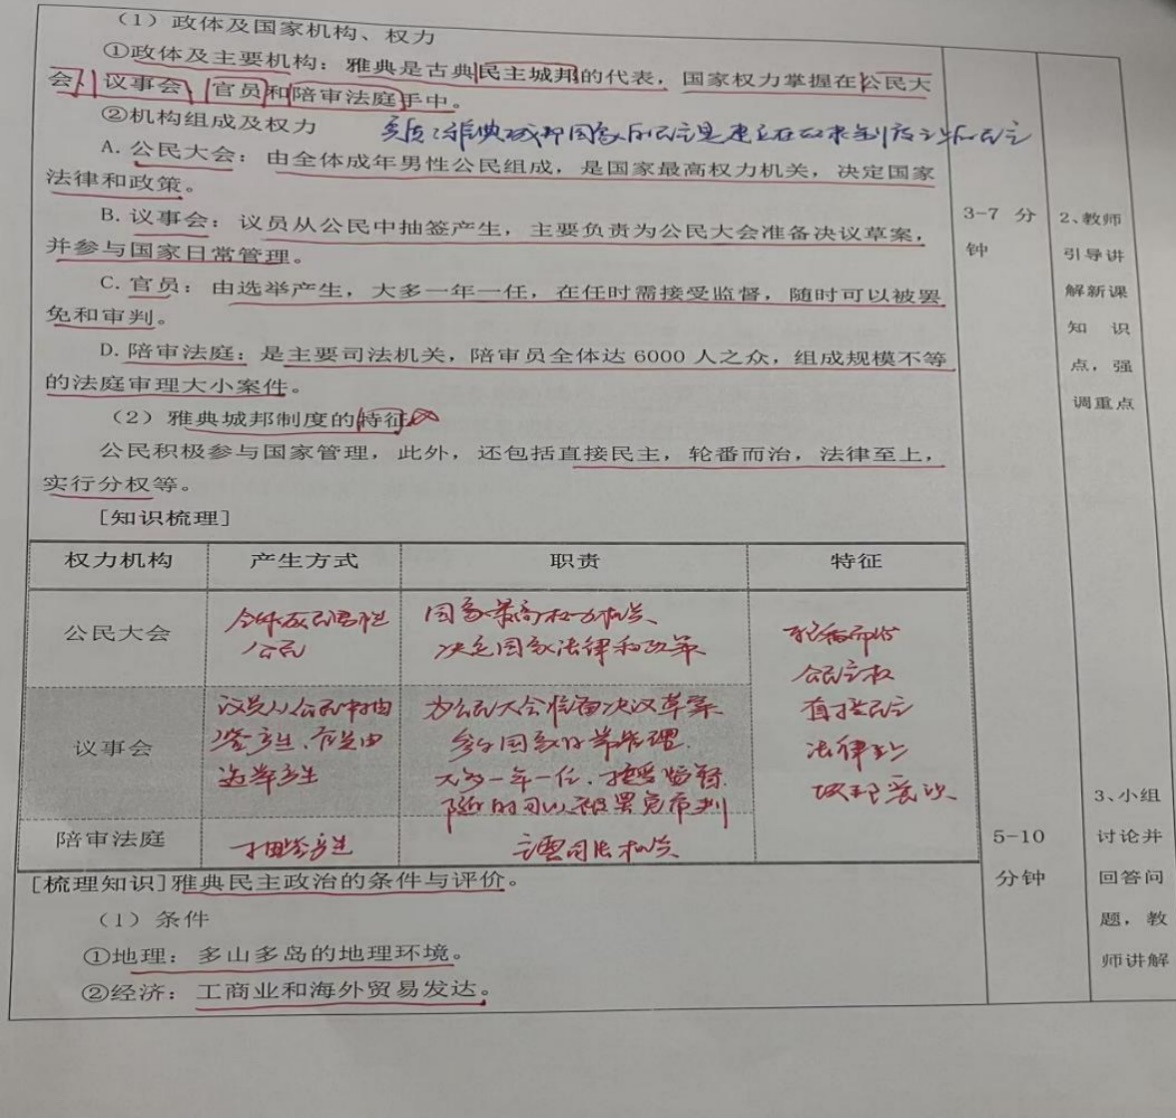 （1）政体及国家机构、权力
①政体及主要机构：雅典是古典民主城邦的代表，国家权力掌握在公民大
会、议事会、官员和陪审法庭手中。
②机构组成及权力
实质：雅典城邦国家的民主是建立在奴隶制度上的民主
A. 公民大会：由全体成年男性公民组成，是国家最高权力机关，决定国家
法律和政策。
B. 议事会：议员从公民中抽签产生，主要负责为公民大会准备决议草案，
并参与国家日常管理。
C. 官员：由选举产生，大多一年一任，在任时需接受监督，随时可以被罢
免和审判。
D. 陪审法庭：是主要司法机关，陪审员全体达 6000 人之众，组成规模不等
的法庭审理大小案件。
（2）雅典城邦制度的特征
公民积极参与国家管理，此外，还包括直接民主，轮番而治，法律至上，
实行分权等。
[知识梳理]
权力机构 产生方式 职责 特征
公民大会
全体成年男性
公民
国家最高权力机关、
决定国家法律和政策
议事会
议员从公民中抽
签产生、官员由
选举产生
为公民大会准备决议草案
参与国家日常管理.
大多一年一任.接受监督.
随时可以被罢免审判
陪审法庭
抽签产生
主要司法机关
轮番而治
公民主权
直接民主
法律至上
城邦意识
[梳理知识]雅典民主政治的条件与评价。
（1）条件
①地理：多山多岛的地理环境。
②经济：工商业和海外贸易发达。
3-7 分
钟
5-10
分钟
2、教师
引导讲
解新课
知 识
点，强
调重点
3、小组
讨论并
回答问
题，教
师讲解